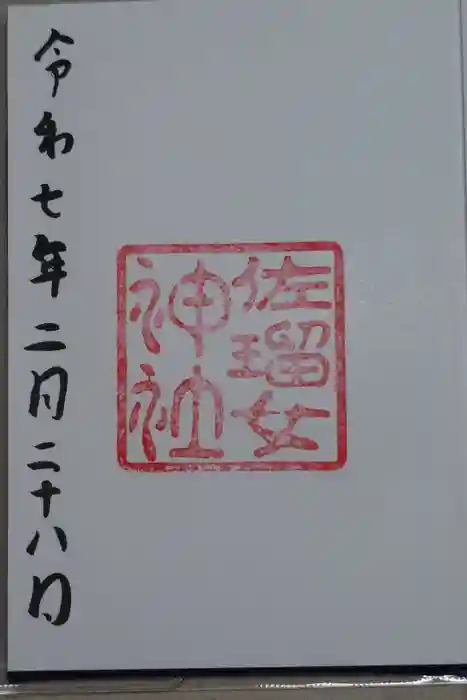 佐瑠女
神社
令和七年二月二十八日